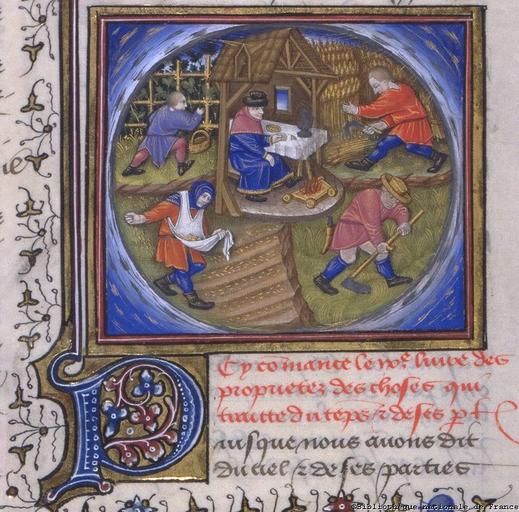 Cy co͞mance le ixᵉ livre des
proprietez des choses qui
traitte du te͞ps ⁊ de ses p
Puisque nous auons dit
du ciel ⁊ de ses parties
©Bibliothèque nationale de France